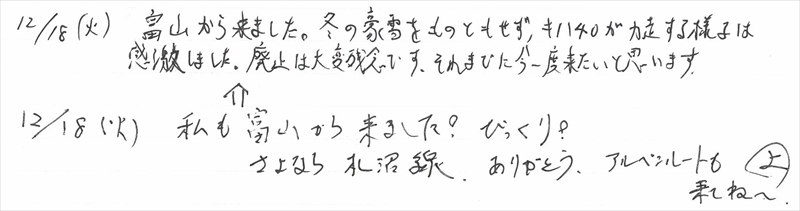 12/18(火) 富山から来ました。冬の豪雪をものともせず、キハ40が力走する様子は
感激しました。廃止は大変残念です、それまでに今一度来たいと思います
⇑
12/18(火) 私も富山から来ました? びっくり?
さよなら 札沼線、ありがとう、アルペンルートも
乗てね〜.